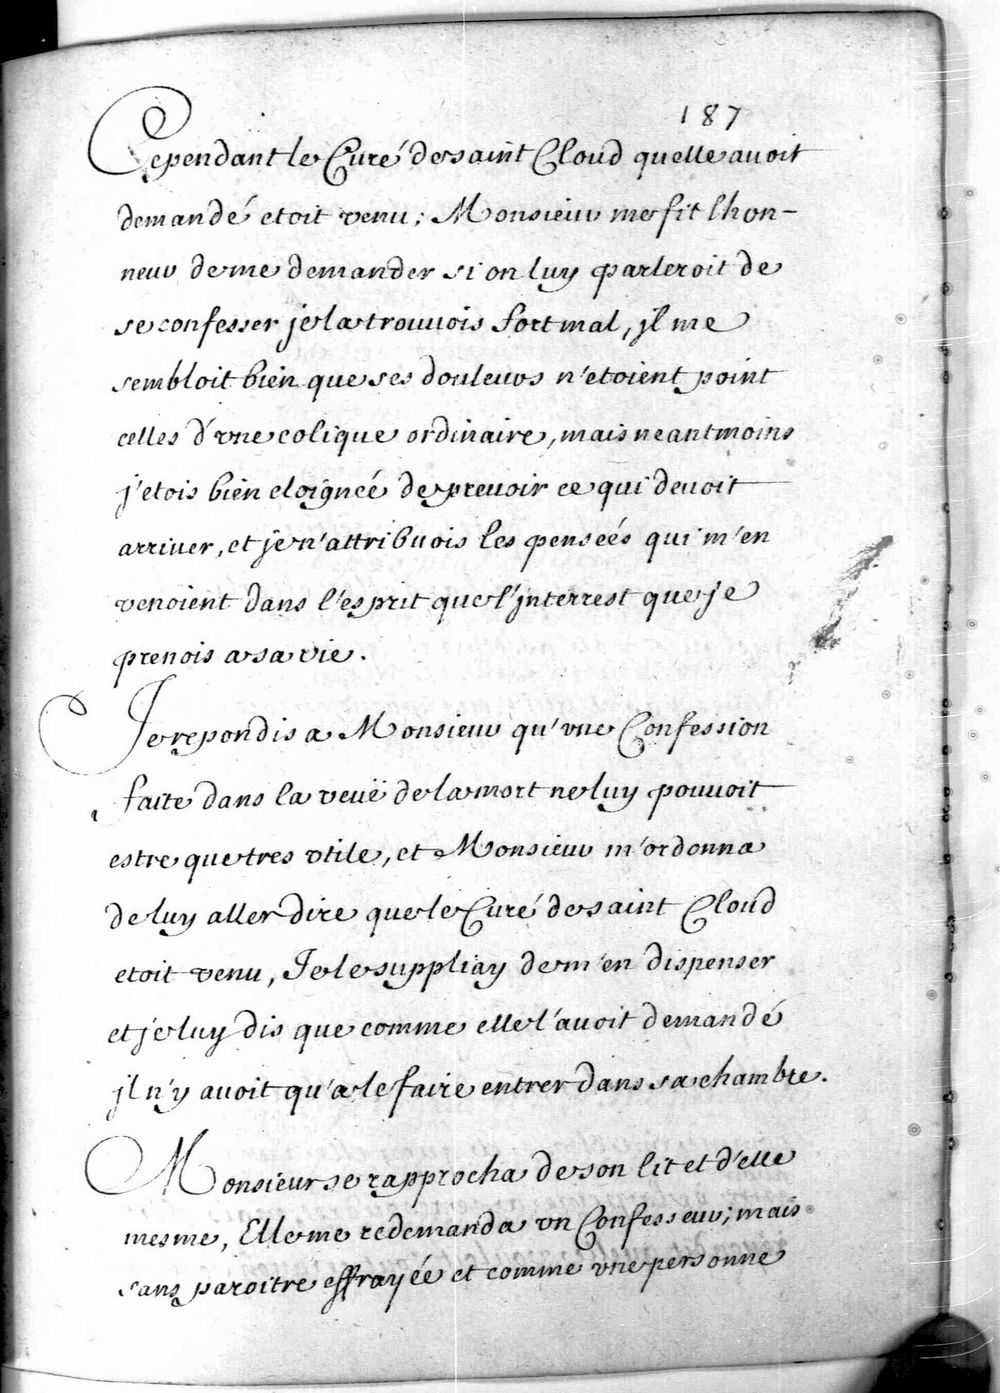 187
Cependant le Curé de saint Cloud quelle avoit
demandé etoit venu; Monsieur me fit lhon-
neur de me demander si on luy parleroit de
se confesser je la trouvois fort mal, jl me
sembloit bien que ses douleurs n'etoient point
celles d'vne colique ordinaire, mais neantmoins
j'etois bien eloignée de prevoir ce qui devoit
arriver, et je n'attribuois les pensées qui m'en
venoient dans l'esprit que l'jnterrest que je
prenois a sa vie.
Je repondis a Monsieur qu'vne Confession
faite dans la veuë de la mort ne luy pouvoit
estre que tres vtile, et Monsieur m'ordonna
de luy aller dire que le Curé de saint Cloud
etoit venu, Je le suppliay de m'en dispenser
et je luy dis que comme elle l'avoit demandé
jl n'y avoit qu'a le faire entrer dans sa chambre.
Monsieur se rapprocha de son lit et d'elle
mesme, Elle me redemanda vn Confesseur; mais
sans paroitre effrayée et comme vne personne